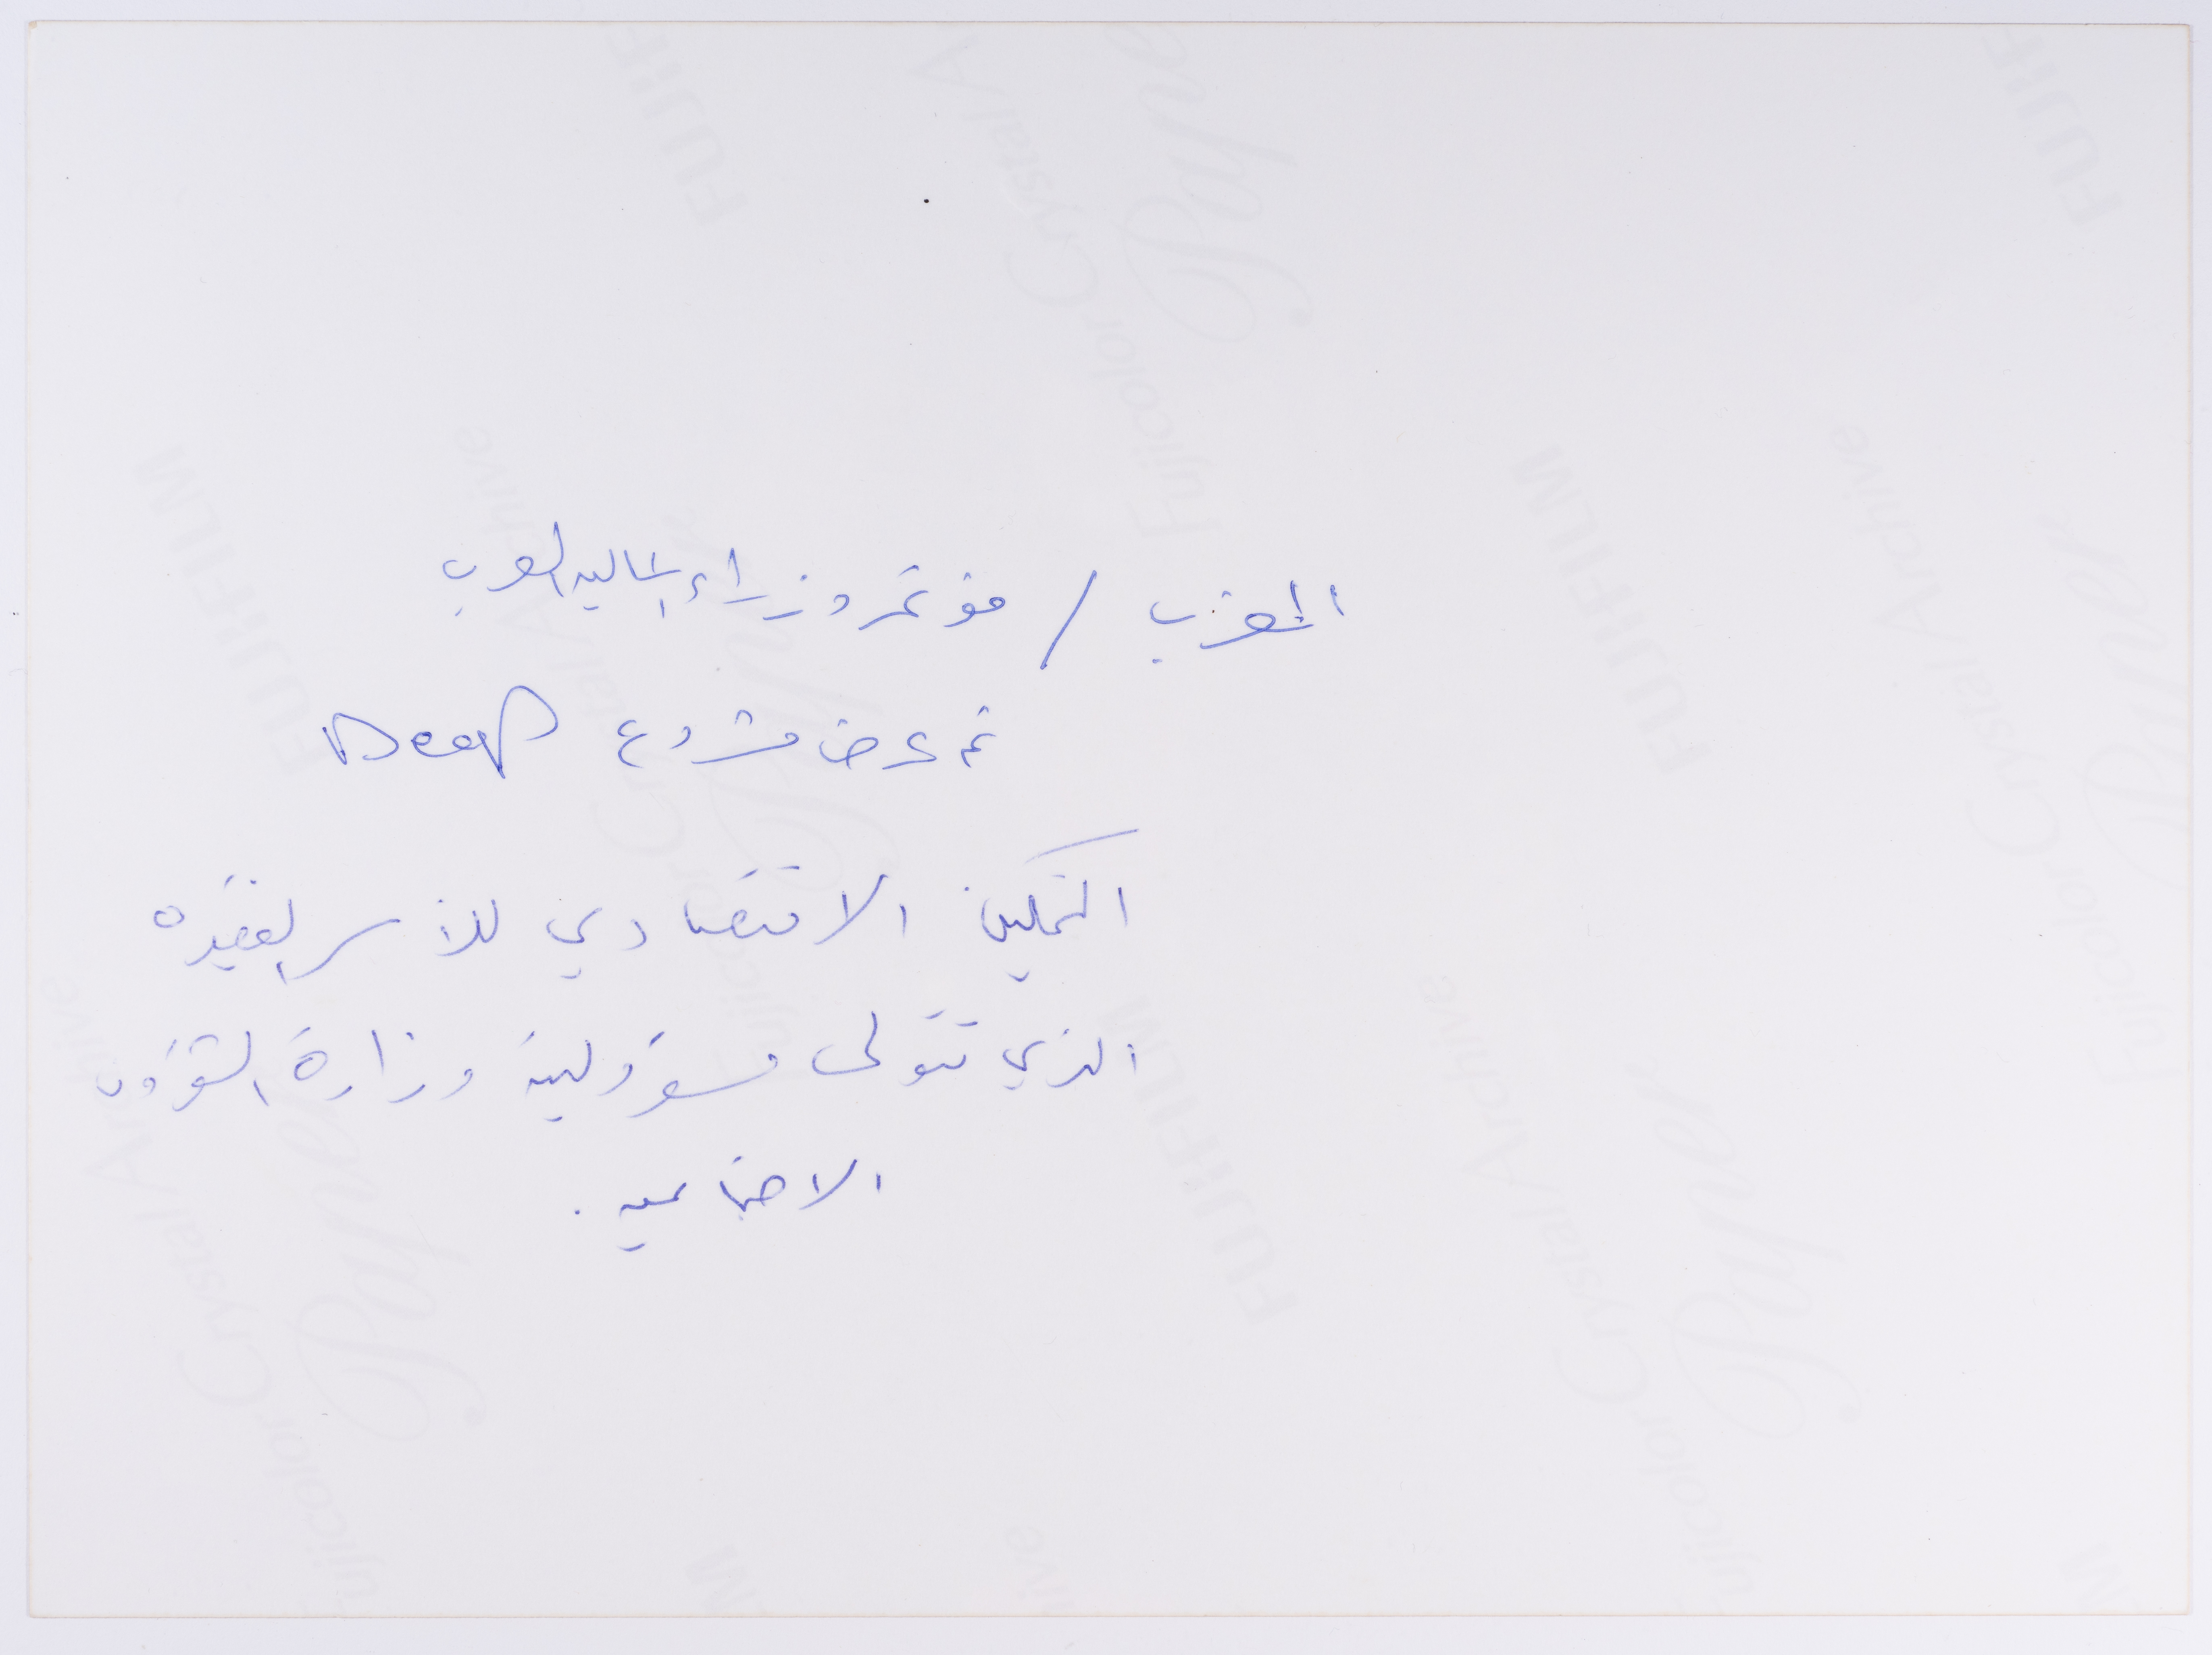 المغرب / مؤتمر وزراء المالية العرب
تم عرض مشروع Deep
التمكين الاقتصادي للأسر الفقيره
الذي تتولى مسؤولية وزارة الشؤون
الاجتماعيه .